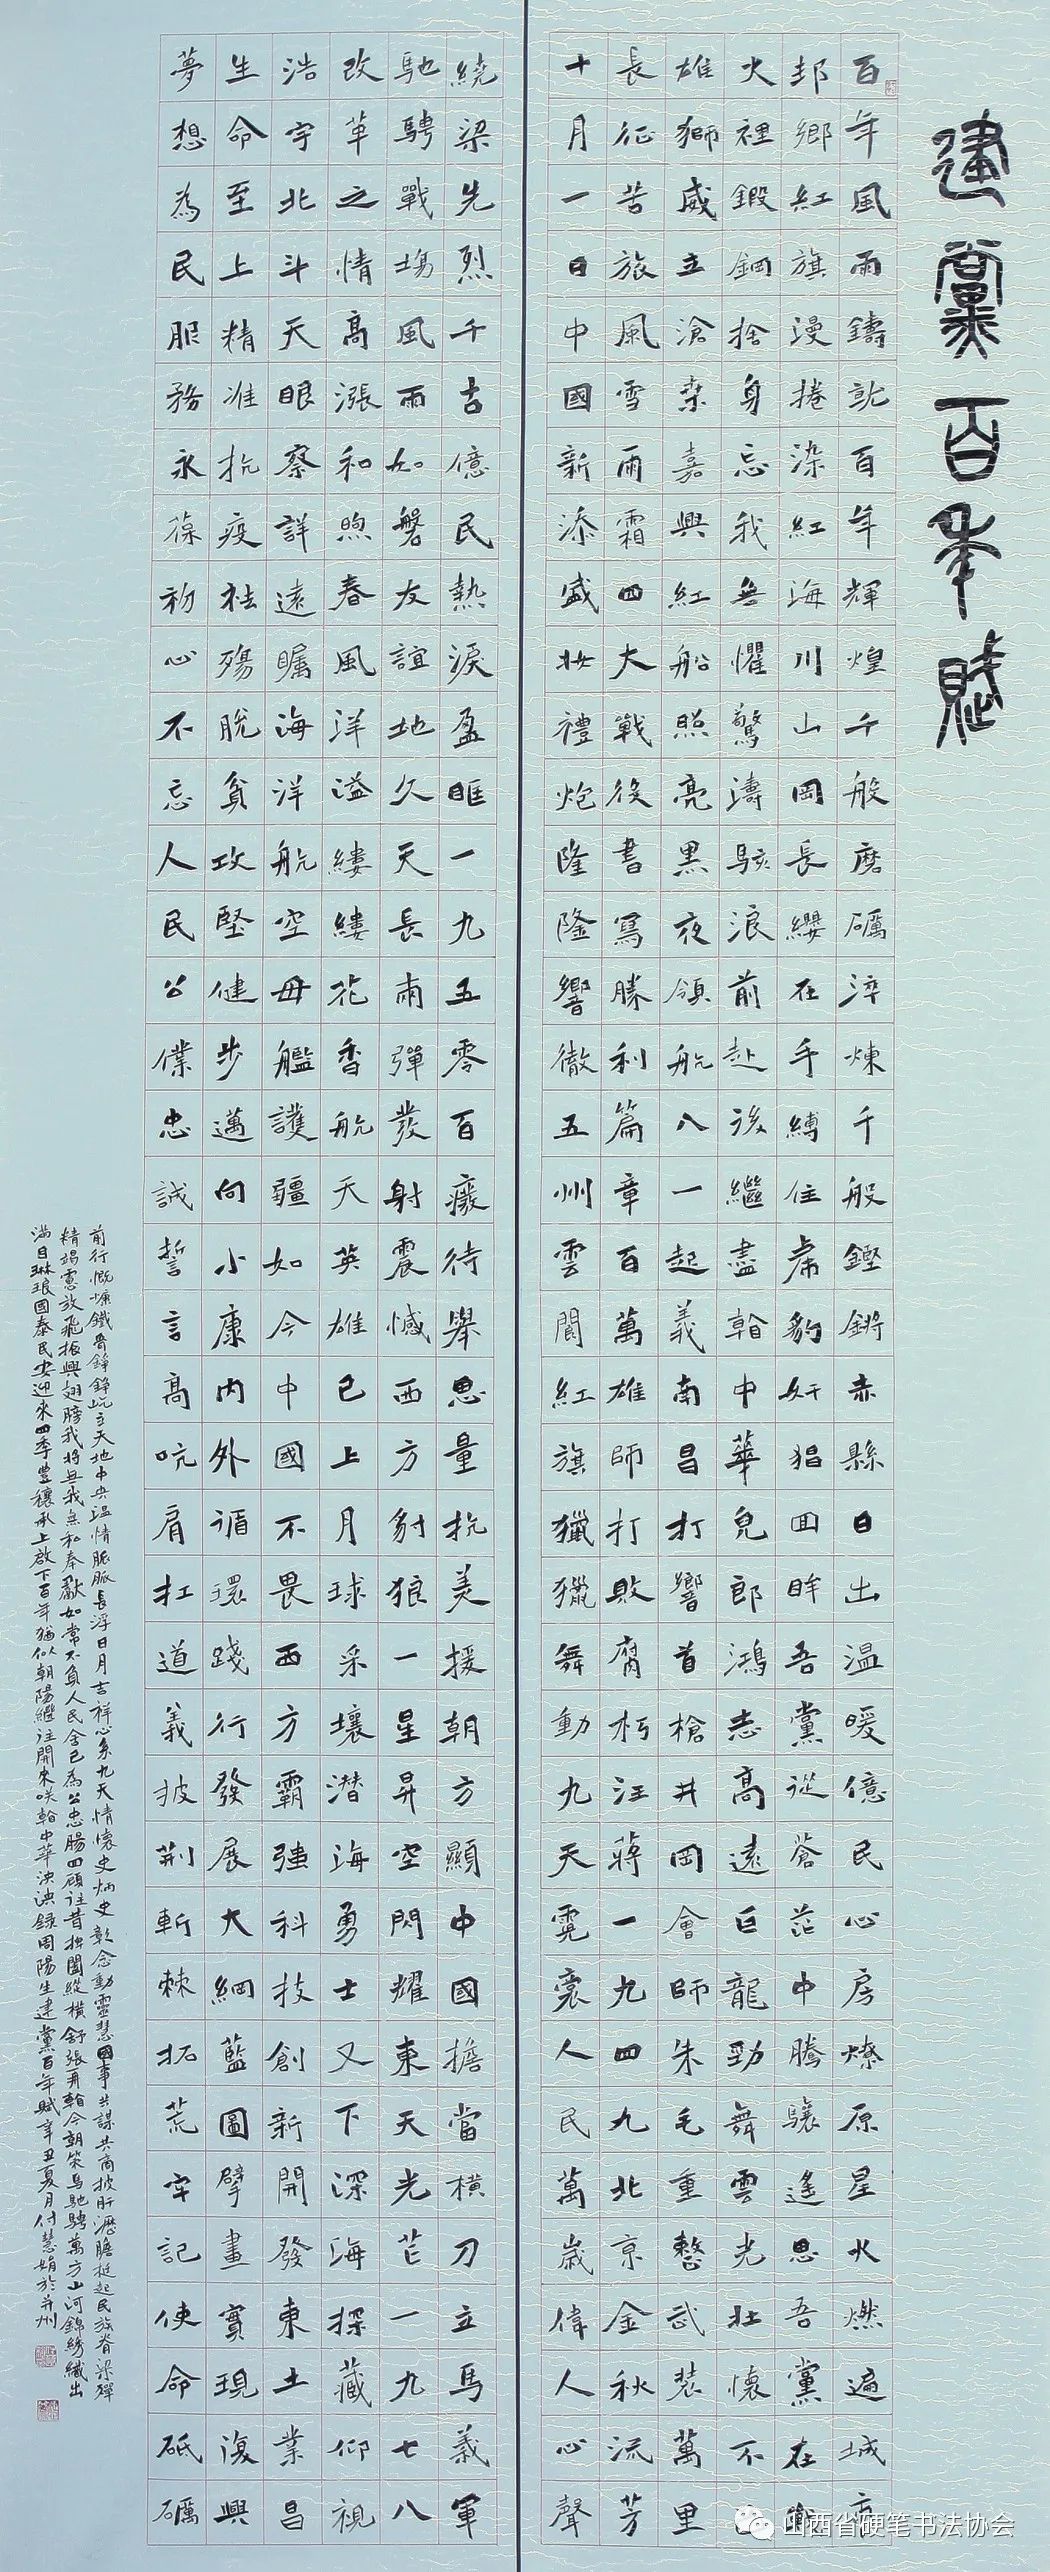 建黨百年賦
百年風雨鑄就百年輝煌千般磨礪淬煉千般鏗鏘赤縣日出溫暖億民心房燎原星火燃遍城
邦鄉紅旗漫捲染紅海川山岡長纓在手縛住虎豹奸猖回眸吾黨從蒼茫中騰驤遙思吾黨在
火裡鍛鋼捨身忘我無懼驚濤駭浪前赴後繼盡翰中華兒郎鴻志高遠白龍勁舞雲光壯懷不
雄獅威立滄桑嘉興紅船照亮黑夜領航八一起義南昌打響首槍井岡會師朱毛重整武裝萬里
長征苦旅風雪雨霜四大戰役書寫勝利篇章百萬雄師打敗腐朽汪蔣一九四九北京金秋流芳
十月一日中國新添盛妝禮炮隆隆響徹五州雲閣紅旗獵獵舞動九天霓裳人民萬歲偉人心聲
繞梁先烈千古億民熱淚盈眶一九五零百癈待舉思量抗美援朝方顯中國擔當橫刀立馬義軍
馳騁戰場風雨如磐友誼地久天長兩彈發射震憾西方豺狼一星昇空閃耀東天光芒一九七八
改革之情高漲和煦春風洋溢縷縷花香航天英雄已上月球采壤潛海勇士又下深海探藏仰視
浩宇北斗天眼察詳遠矚海洋航空母艦護疆如今中國不畏西方霸強科技創新開發東土業昌
生命至上精准抗疫祛殤脫貧攻堅健步邁向小康內外循環踐行發展大綱藍圖擘畫實現復興
夢想為民服務永葆初心不忘人民公僕忠誠誓言高吭肩扛道義披荆斬棘拓荒牢記使命砥礪
前行慨慷鐵骨錚錚屹立天地中央溫情脈脈長浮日月吉祥心系九天情懷史炳史彰念動靈慧國事共謀共商披肝瀝膽挺起民族脊梁殫
精竭慮放飛振興翅膀我將無我無私奉獻如常不負人民舍己為公忠腸四顧往昔捭闔縱橫舒張再翰今朝策馬馳騁萬方山河錦綉織出
滿目琳琅國泰民安迎來四季豐穰承上啟下百年猶似朝陽繼往開來咲翰中華泱泱錄周陽生建黨百年賦辛丑夏月付慧娟於并州
山西省硬笔书法协会